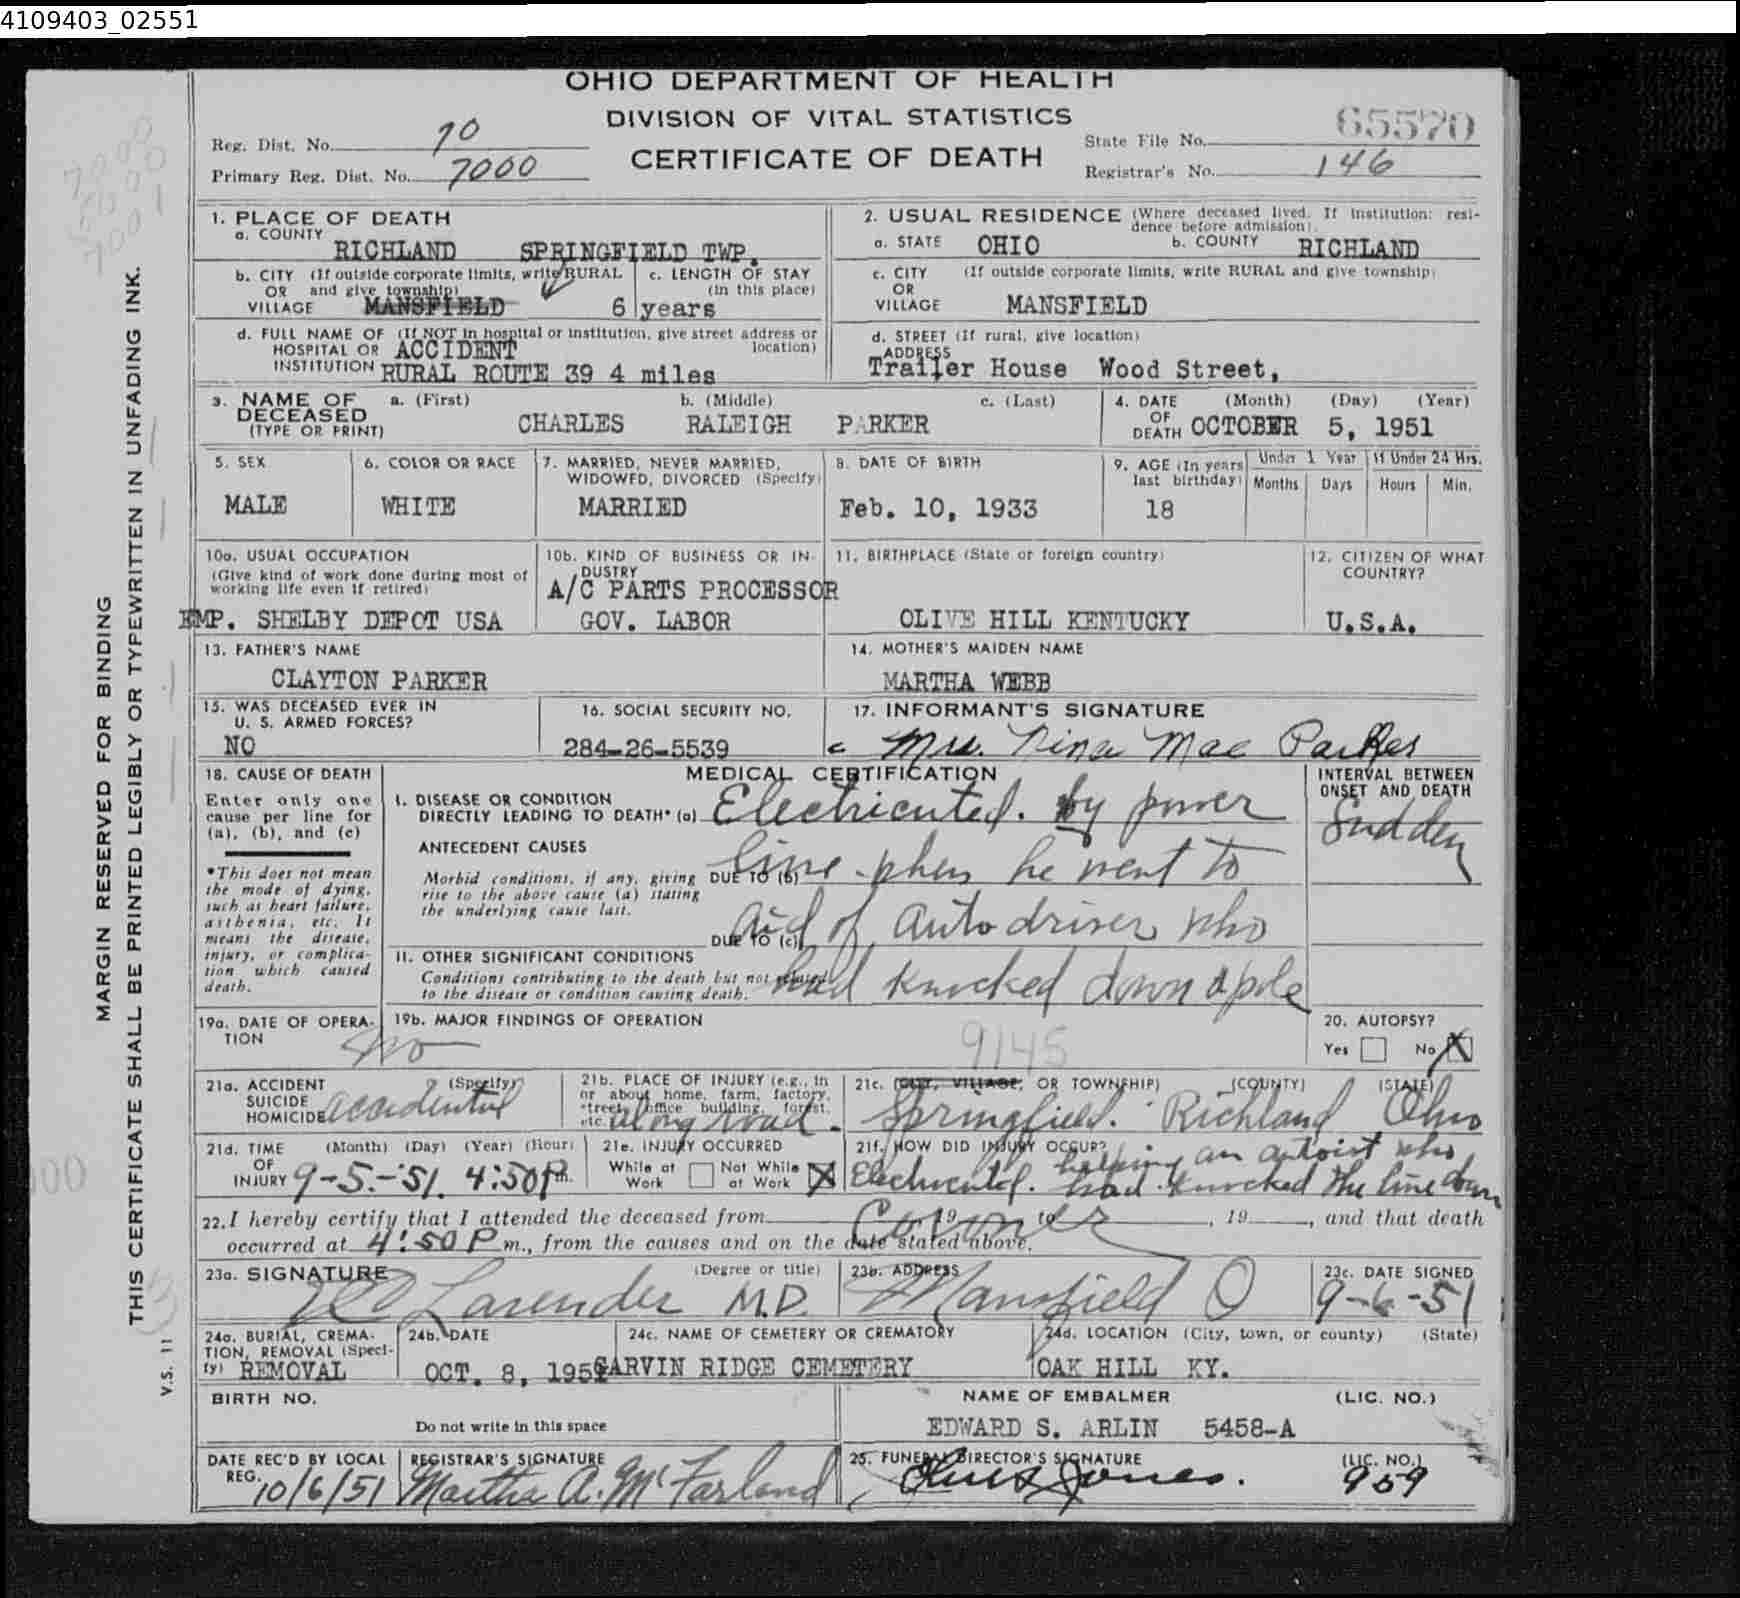 4109403_02551
OHIO DEPARTMENT OF HEALTH
DIVISION OF VITAL STATISTICS
CERTIFICATE OF DEATH
Reg. Dist. No. 70
Primary Reg. Dist. No. 7000
State File No. 65570
Registrar's No. 146
MARGIN RESERVED FOR BINDING
THIS CERTIFICATE SHALL BE PRINTED LEGIBLY OR TYPEWRITTEN IN UNFADING INK.
V.S. 11
1. PLACE OF DEATH
a. COUNTY
RICHLAND SPRINGFIELD TWP.
b. CITY (If outside corporate limits, write RURAL
OR and give township)
VILLAGE MANSFIELD
c. LENGTH OF STAY
(in this place)
6 years
d. FULL NAME OF (If NOT in hospital or institution, give street address or
HOSPITAL OR ACCIDENT location)
INSTITUTION RURAL ROUTE 39 4 miles
2. USUAL RESIDENCE (Where deceased lived. If institution: resi-
dence before admission).
a. STATE OHIO b. COUNTY RICHLAND
c. CITY (If outside corporate limits, write RURAL and give township)
OR
VILLAGE MANSFIELD
d. STREET (If rural, give location)
ADDRESS
Trailer House Wood Street,
3. NAME OF DECEASED
(TYPE OR PRINT)
a. (First) b. (Middle) c. (Last)
CHARLES RALEIGH PARKER
4. DATE (Month) (Day) (Year)
OF
DEATH OCTOBER 5, 1951
5. SEX
MALE
6. COLOR OR RACE
WHITE
7. MARRIED, NEVER MARRIED,
WIDOWED, DIVORCED (Specify)
MARRIED
8. DATE OF BIRTH
Feb. 10, 1933
9. AGE (In years
last birthday)
18
Under 1 Year
Months Days
If Under 24 Hrs.
Hours Min.
10a. USUAL OCCUPATION
(Give kind of work done during most of
working life even if retired)
EMP. SHELBY DEPOT USA
10b. KIND OF BUSINESS OR IN-
DUSTRY
A/C PARTS PROCESSOR
GOV. LABOR
11. BIRTHPLACE (State or foreign country)
OLIVE HILL KENTUCKY
12. CITIZEN OF WHAT
COUNTRY?
U.S.A.
13. FATHER'S NAME
CLAYTON PARKER
14. MOTHER'S MAIDEN NAME
MARTHA WEBB
15. WAS DECEASED EVER IN
U. S. ARMED FORCES?
NO
16. SOCIAL SECURITY NO.
284-26-5539
17. INFORMANT'S SIGNATURE
Mrs. Nina Mae Parker
18. CAUSE OF DEATH
Enter only one
cause per line for
(a), (b), and (c)
*This does not mean
the mode of dying,
such as heart failure,
asthenia, etc. It
means the disease,
injury, or complica-
tion which caused
death.
MEDICAL CERTIFICATION
I. DISEASE OR CONDITION
DIRECTLY LEADING TO DEATH* (a) Electricuted. by power
ANTECEDENT CAUSES
Morbid conditions, if any, giving
rise to the above cause (a) stating
the underlying cause last.
DUE TO (b) line when he went to
DUE TO (c) aid of auto driver who
II. OTHER SIGNIFICANT CONDITIONS
Conditions contributing to the death but not related
to the disease or condition causing death.
had knocked down a pole
INTERVAL BETWEEN
ONSET AND DEATH
Sudden
19a. DATE OF OPERA-
TION
no
19b. MAJOR FINDINGS OF OPERATION
9145
20. AUTOPSY?
Yes No X
21a. ACCIDENT (Specify)
SUICIDE
HOMICIDE accidental
21b. PLACE OF INJURY (e.g., in
or about home, farm, factory,
street, office building, forest,
etc. along road.
21c. (CITY, VILLAGE, OR TOWNSHIP) (COUNTY) (STATE)
Springfield. Richland Ohio
21d. TIME (Month) (Day) (Year) (Hour)
OF
INJURY 9-5-'51. 4:50 P m.
21e. INJURY OCCURRED
While at Work Not While at Work X
21f. HOW DID INJURY OCCUR?
helping an autoist who
Electricuted. had knocked the line down
22. I hereby certify that I attended the deceased from 19 to , 19 , and that death
Coroner
occurred at 4:50 P m., from the causes and on the date stated above.
23a. SIGNATURE (Degree or title)
Lavender M.D.
23b. ADDRESS
Mansfield O
23c. DATE SIGNED
9-6-51
24a. BURIAL, CREMA-
TION, REMOVAL (Speci-
fy) REMOVAL
24b. DATE
OCT. 8, 1951
24c. NAME OF CEMETERY OR CREMATORY
GARVIN RIDGE CEMETERY
24d. LOCATION (City, town, or county) (State)
OAK HILL KY.
BIRTH NO.
Do not write in this space
NAME OF EMBALMER (LIC. NO.)
EDWARD S. ARLIN 5458-A
DATE REC'D BY LOCAL
REG. 10/6/51
REGISTRAR'S SIGNATURE
Martha A. McFarland
25. FUNERAL DIRECTOR'S SIGNATURE
Jones.
(LIC. NO.)
959